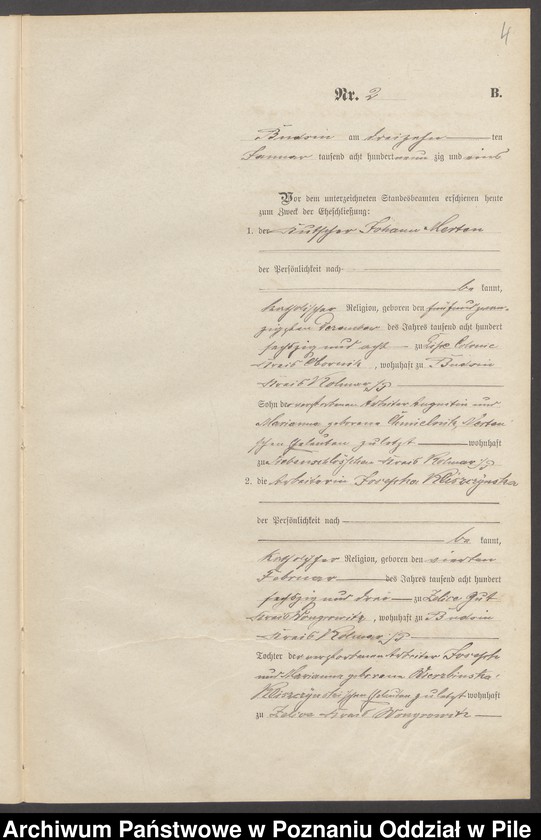 4
Nr. 2 B.
Budsin am dreizehn ten
Januar tausend acht hundert neun zig und eins
Vor dem unterzeichneten Standesbeamten erschienen heute
zum Zweck der Eheschließung:
1. der Kutscher Johann Merten
der Persönlichkeit nach
be kannt,
katholischer Religion, geboren den fünfundzwan-
zigsten Dezember des Jahres tausend acht hundert
sechszig und acht zu Colonie
Kreis Obornik, wohnhaft zu Budsin
Kreis Kolmar i/P
Sohn der verstorbenen Arbeiter Augustin und
Marianna geborene Merten
schen Eheleuten zuletzt wohnhaft
zu Kreis Kolmar i/P
2. die Arbeiterin Josepha Kliszczynska
der Persönlichkeit nach
be kannt,
katholischer Religion, geboren den vierten
Februar des Jahres tausend acht hundert
sechszig und drei zu Zelice Gut
Kreis Wongrowitz, wohnhaft zu Budsin
Kreis Kolmar i/P
Tochter der verstorbenen Arbeiter Joseph
und Marianna geborene Wierzbinska
Kliszczynski'schen Eheleuten zuletzt wohnhaft
zu Kreis Wongrowitz
Archiwum Państwowe w Poznaniu Oddział w Pile